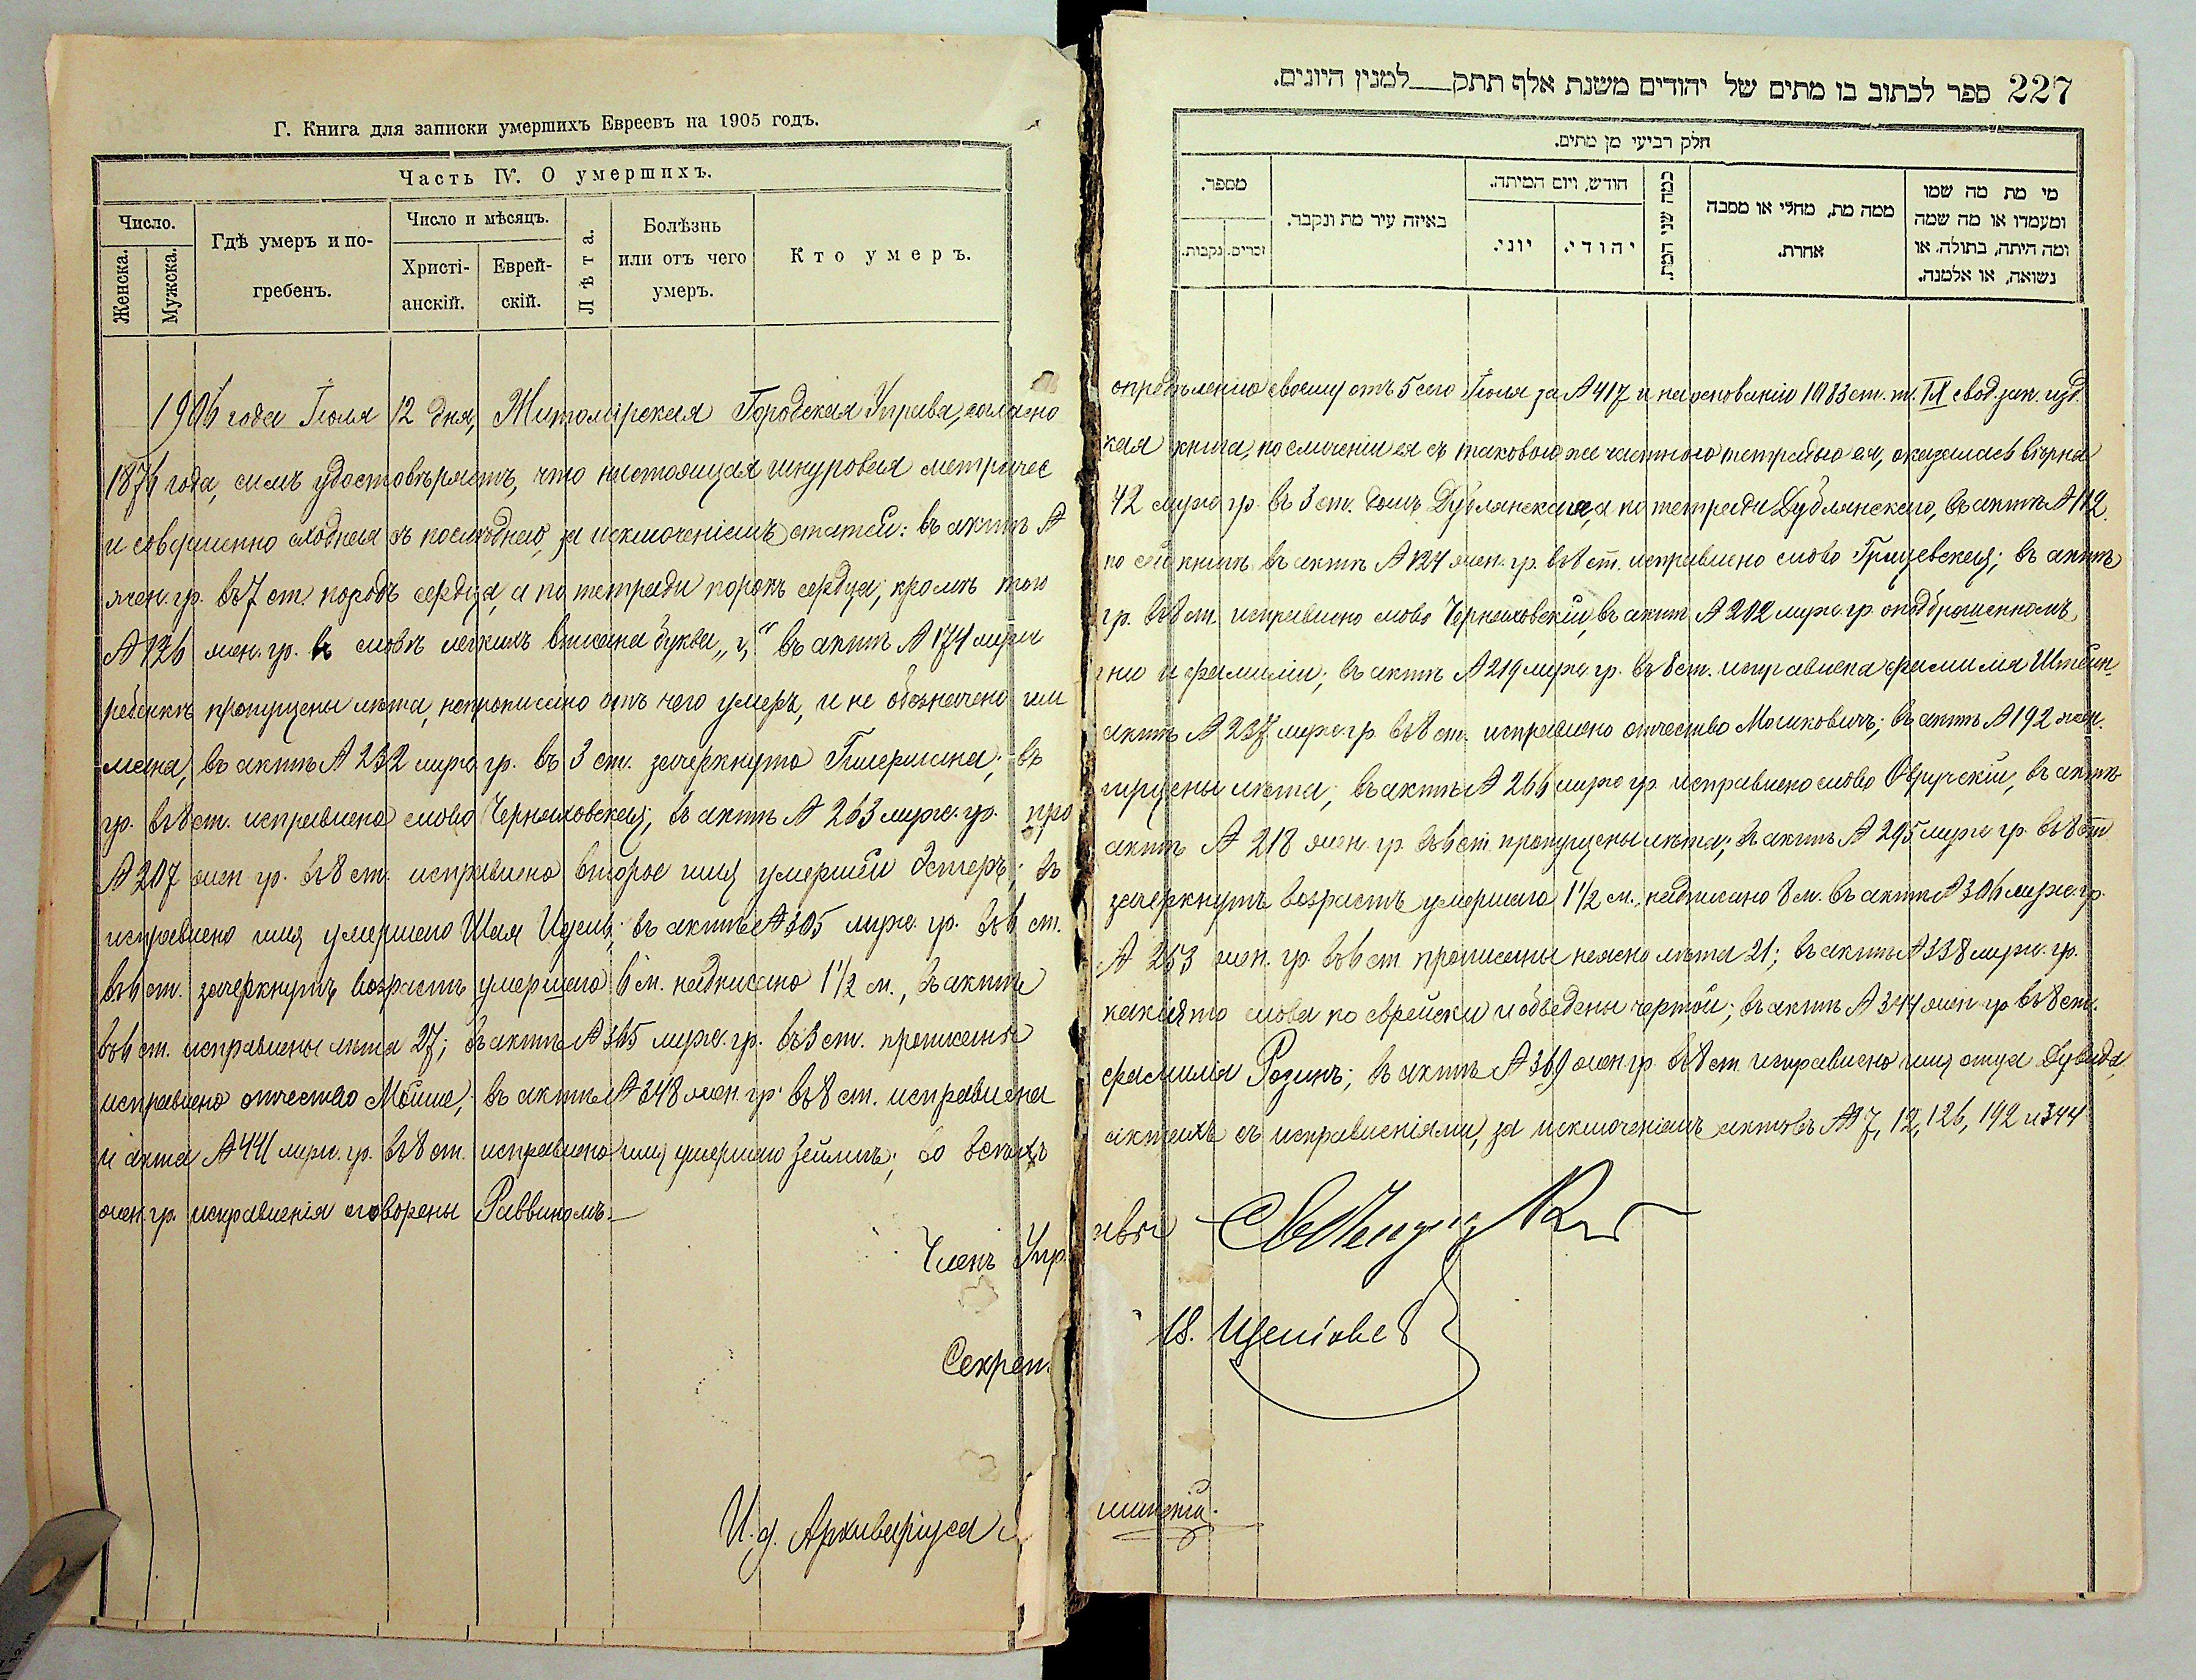 Г. Книга для записки умершихъ Евреевъ на 1905 годъ.
Часть IV. О умершихъ.
Число.
Женска.
Мужска.
Гдѣ умеръ и по-
гребенъ.
Число и мѣсяцъ.
Христі-
анскій.
Еврей-
скій.
Лѣта.
Болѣзнь
или отъ чего
умеръ.
Кто умеръ.
227 ספר לכתוב בו מתים של יהודים משנת אלף תתק למנין היונים.
חלק רביעי מן מתים.
מספר.
זכרים.
נקבות.
באיזה עיר מת ונקבר.
חודש, ויום המיתה.
יוני.
יהודי.
כמה שני המת.
ממה מת, מחלי או מסבה
אחרת.
מי מת מה שמו
ומעמדו או מה שמה
ומה היתה, בתולה. או
נשואה, או אלמנה.
1906 года Іюля 12 дня, Житомірская Городская Управа, согласно опредѣленію своему отъ 5 сего Іюля за № 417 и на основаніи 1083 ст. т. IX свод. зак. изд.
1876 года, симъ удостовѣряетъ, что настоящая шнуровая метричес кая книга, по сличеніи ея съ таковою же частною тетрадью ея, оказалась вѣрна
и совершенно сходная съ послѣднею, за исключеніемъ статей: въ актѣ № 42 муж. гр. въ 3 ст. домъ Дублянская, а по тетради Дублянскаго, въ актѣ № 112
жен. гр. въ 7 ст. породъ сердца, а по тетради порокъ сердца; кромѣ того по сей книгѣ въ актѣ № 124 жен. гр. въ 8 ст. исправлено слово Гращевская; въ актѣ
№ 126 жен. гр. въ словѣ легкихъ вписана буква „г," въ актѣ № 174 муж. гр. въ 8 ст. исправлено слово Черняховскій, въ актѣ № 202 муж. гр. о подброшенномъ
ребенкѣ пропущены лѣта, непрописано отъ чего умеръ, и не обозначено им ени и фамиліи; въ актѣ № 219 муж. гр. въ 8 ст. исправлена фамилія Штейн-
мана, въ актѣ № 232 муж. гр. въ 3 ст. зачеркнуто Гимермана; въ актѣ № 237 муж. гр. въ 8 ст. исправлено отчество Мошковичъ; въ актѣ № 192 жен.
гр. въ 8 ст. исправлено слово Черняховская; въ актѣ № 263 муж. гр. про пущены лѣта; въ актѣ № 266 муж. гр. исправлено слово Овручскій, въ актѣ
№ 207 жен. гр. въ 8 ст. исправлено второе имя умершей Эстеръ; въ актѣ № 218 жен. гр. въ 6 ст. пропущены лѣта; въ актѣ № 295 муж. гр. въ 8 ст.
исправлено имя умершаго Шая Идель; въ актѣ № 305 муж. гр. въ 6 ст. зачеркнутъ возрастъ умершаго 1 1/2 м., надписано 8 м. въ актѣ № 306 муж. гр.
въ 6 ст. зачеркнутъ возрастъ умершаго 6 м. надписано 1 1/2 м., въ актѣ № 253 жен. гр. въ 6 ст. прописаны неясно лѣта 21; въ актѣ № 338 муж. гр.
въ 6 ст. исправлены лѣта 27; въ актѣ № 365 муж. гр. въ 3 ст. прописаны какія то слова по еврейски и объведены чертой; въ актѣ № 344 жен. гр. въ 8 ст.
исправлено отчество Мойше; въ актѣ № 348 жен. гр. въ 8 ст. исправлена фамилія Розинъ; въ актѣ № 369 жен. гр. въ 8 ст. исправлено имя отца Дувида
и акта № 441 муж. гр. въ 8 ст. исправлено имя умершаго Зейликъ; во всѣхъ актахъ съ исправленіями, за исключеніемъ актовъ №№ 7, 12, 126, 192 и 344
жен. гр. исправленія оговорены Раввиномъ.
Членъ Управы
Секрет.
И. д. Архиваріуса